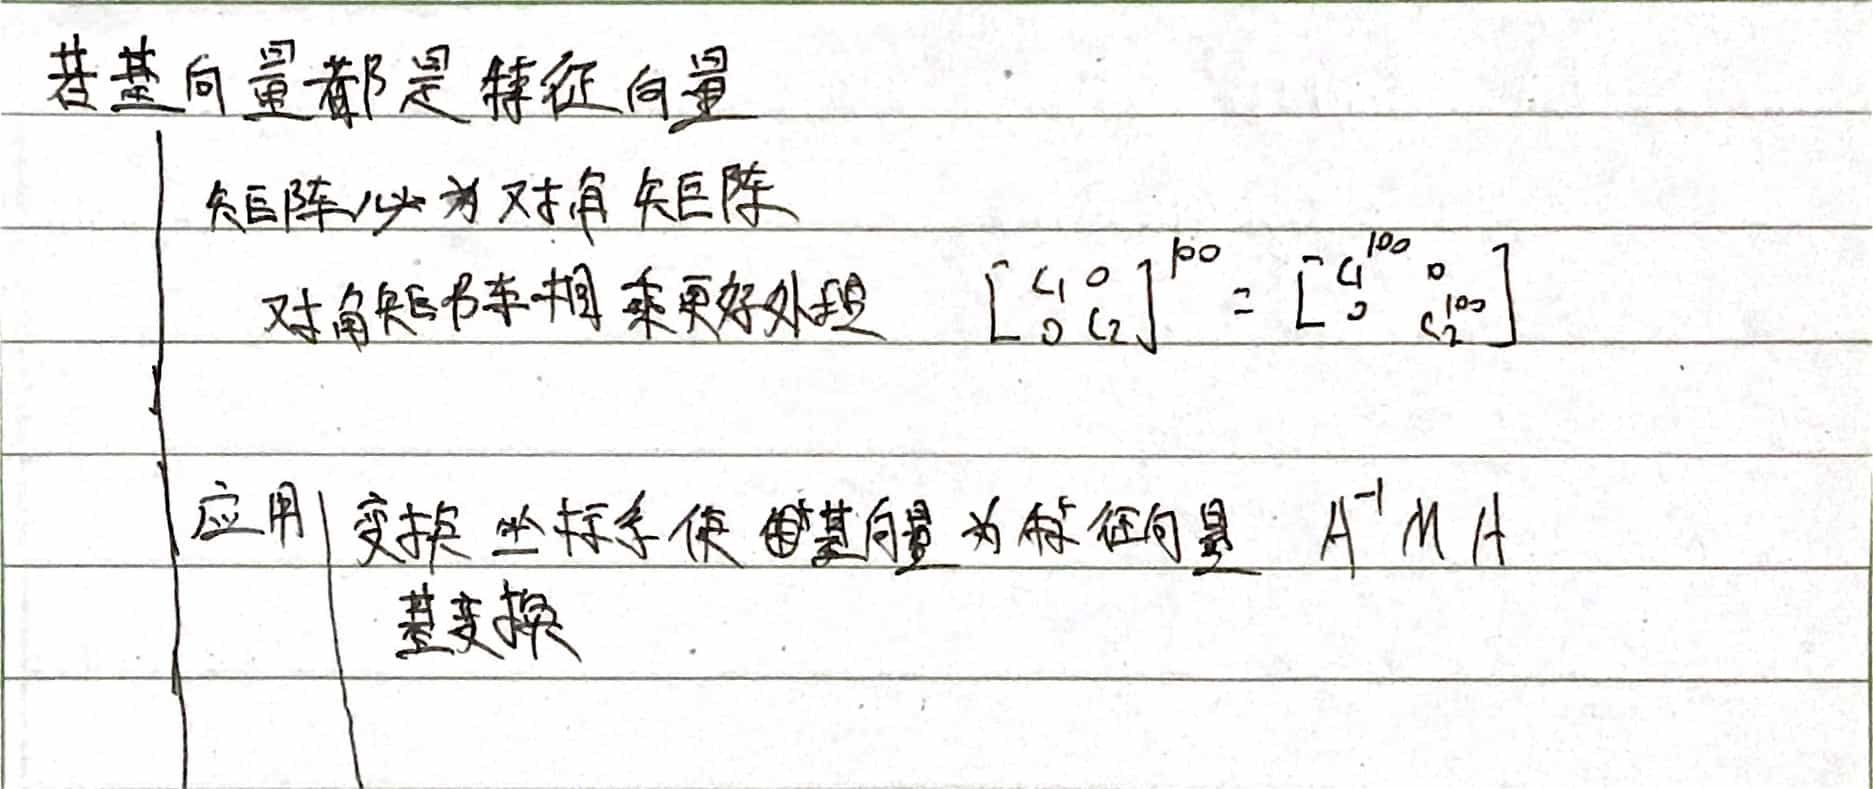 若基向量都是特征向量
矩阵必为对角矩阵
对角矩阵相乘更好处理 [C₁ 0 0 C₂]¹⁰⁰ = [C₁¹⁰⁰ 0 0 C₂¹⁰⁰]
应用 变换坐标系使基向量为特征向量 A⁻¹MA
基变换